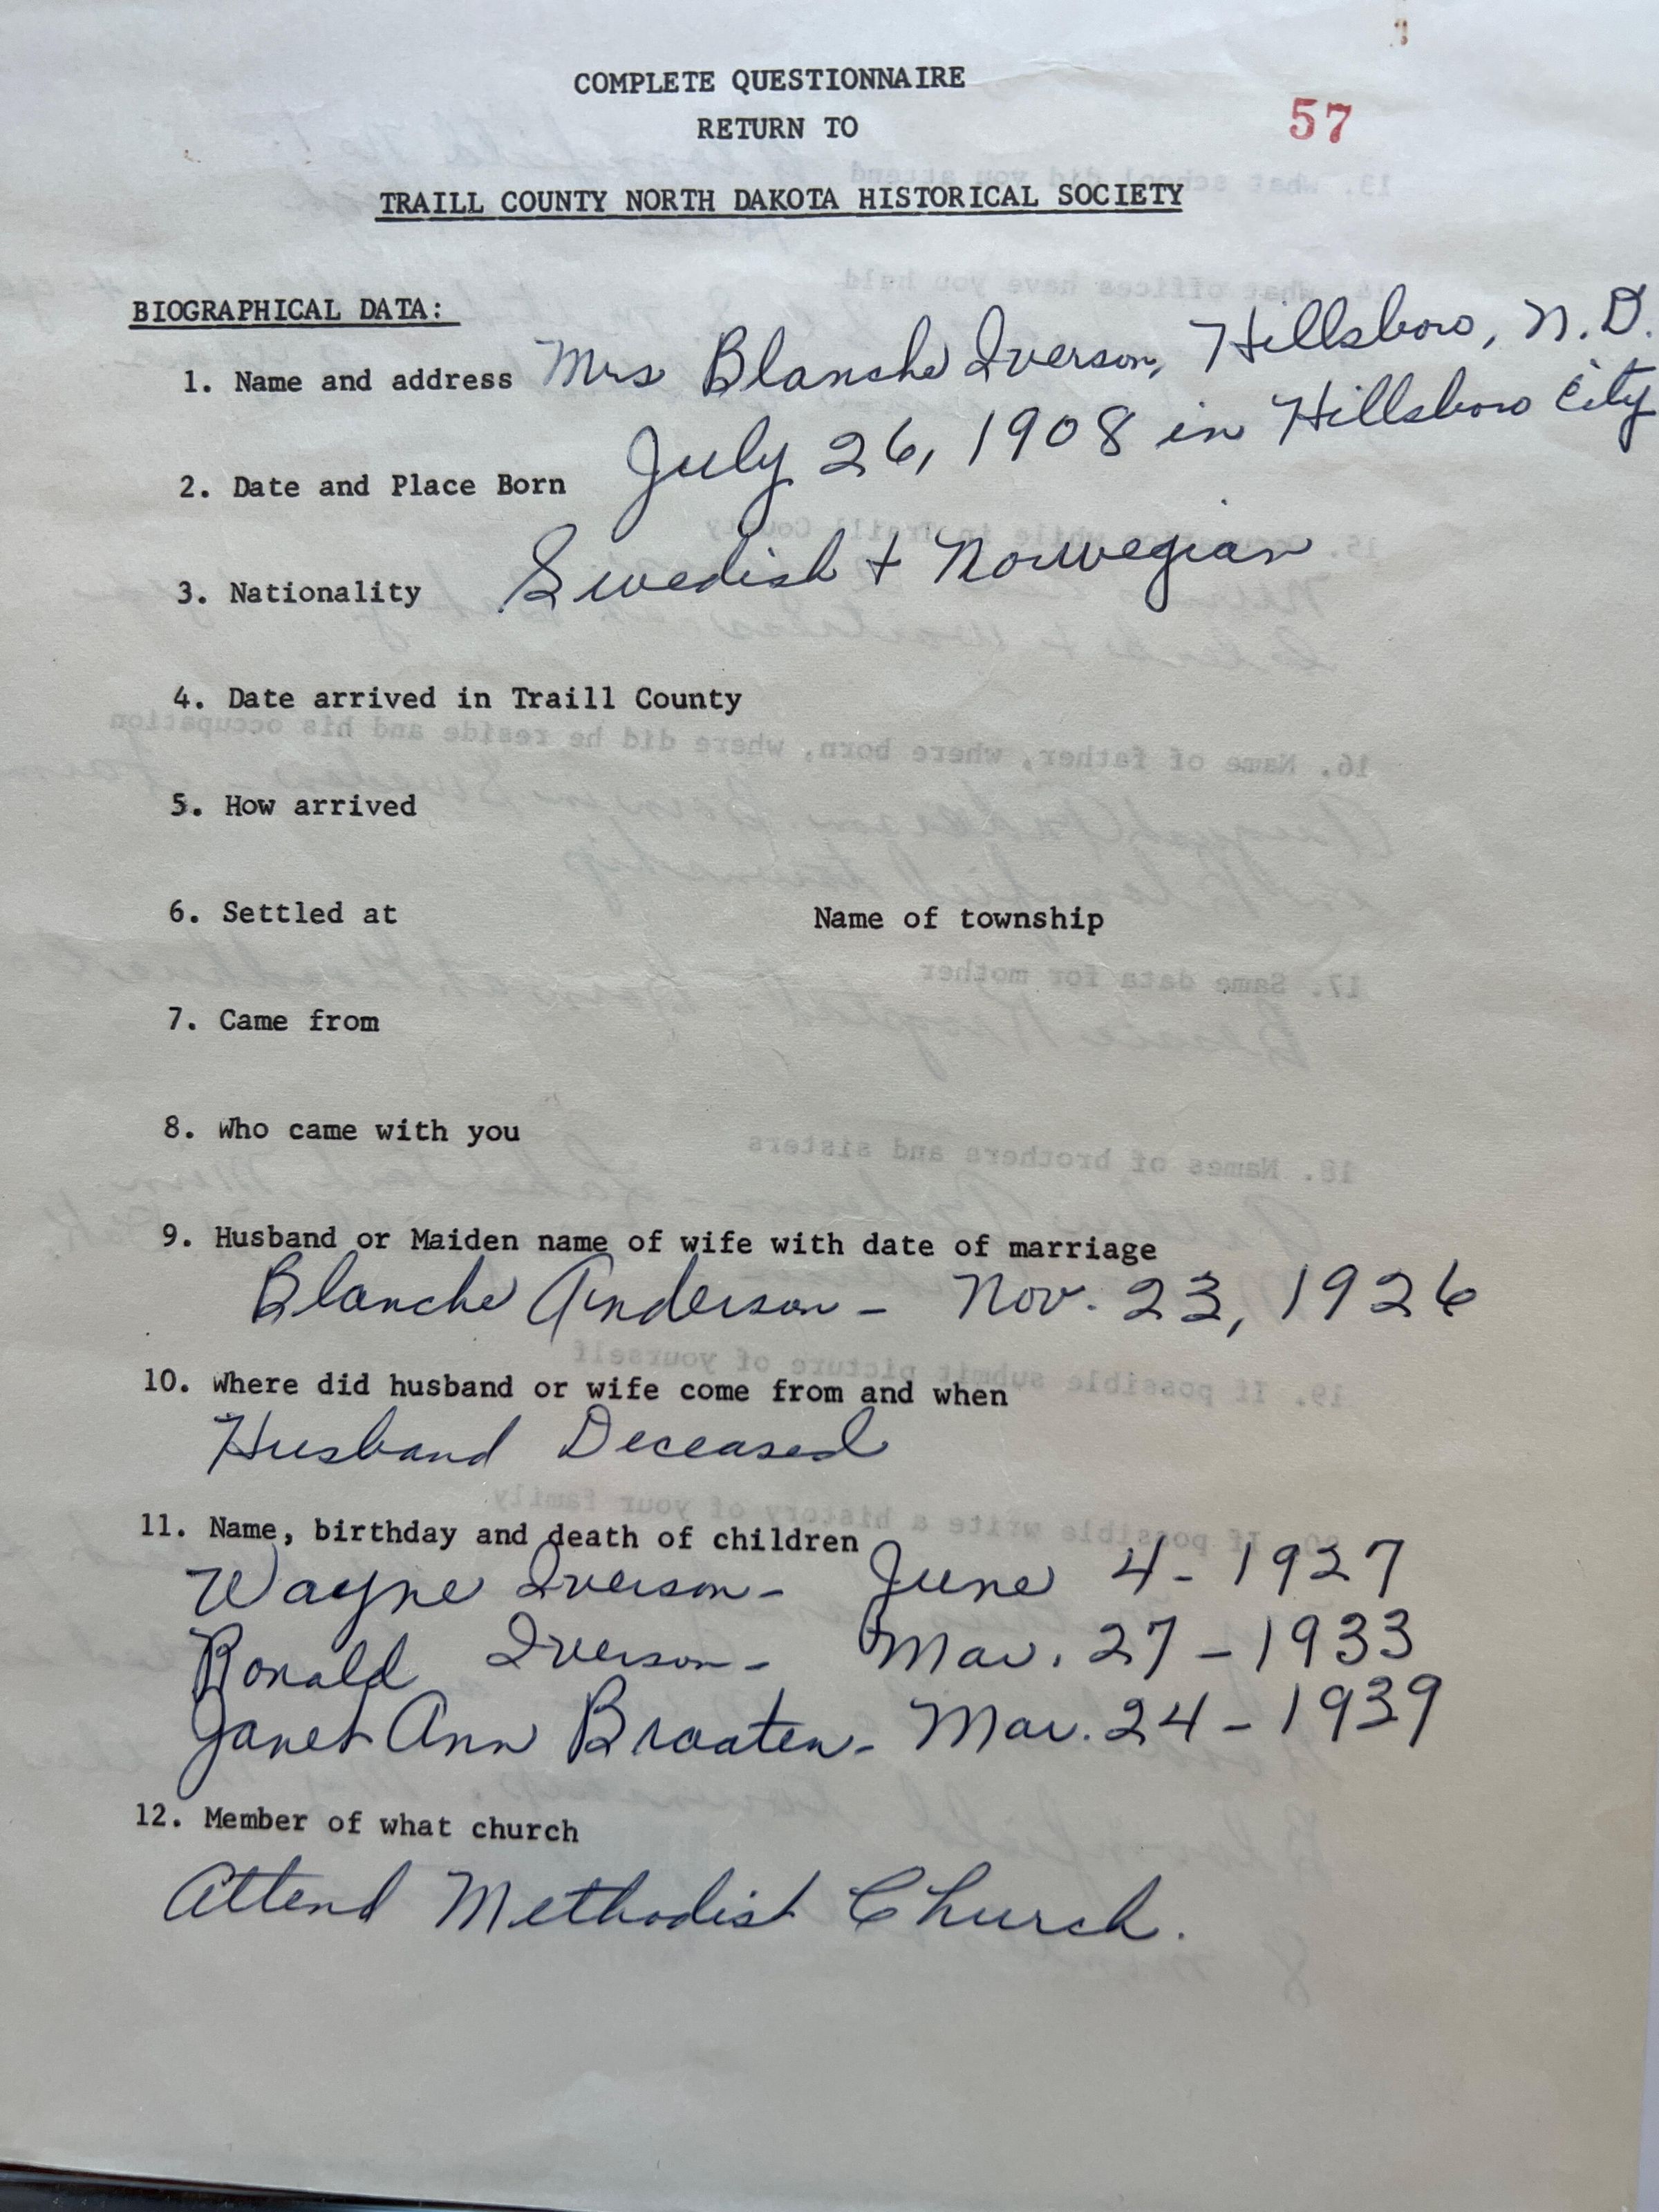 COMPLETE QUESTIONNAIRE
RETURN TO
57
TRAILL COUNTY NORTH DAKOTA HISTORICAL SOCIETY
BIOGRAPHICAL DATA:
1. Name and address Mrs Blanche Iverson, Hillsboro, N.D.
2. Date and Place Born July 26, 1908 in Hillsboro City
3. Nationality Swedish + Norwegian
4. Date arrived in Traill County
5. How arrived
6. Settled at Name of township
7. Came from
8. Who came with you
9. Husband or Maiden name of wife with date of marriage
Blanche Anderson - Nov. 23, 1926
10. Where did husband or wife come from and when
Husband Deceased
11. Name, birthday and death of children
Wayne Iverson - June 4 - 1927
Ronald Iverson - Mar. 27 - 1933
Janet Ann Braaten - Mar. 24 - 1939
12. Member of what church
Attend Methodist Church.